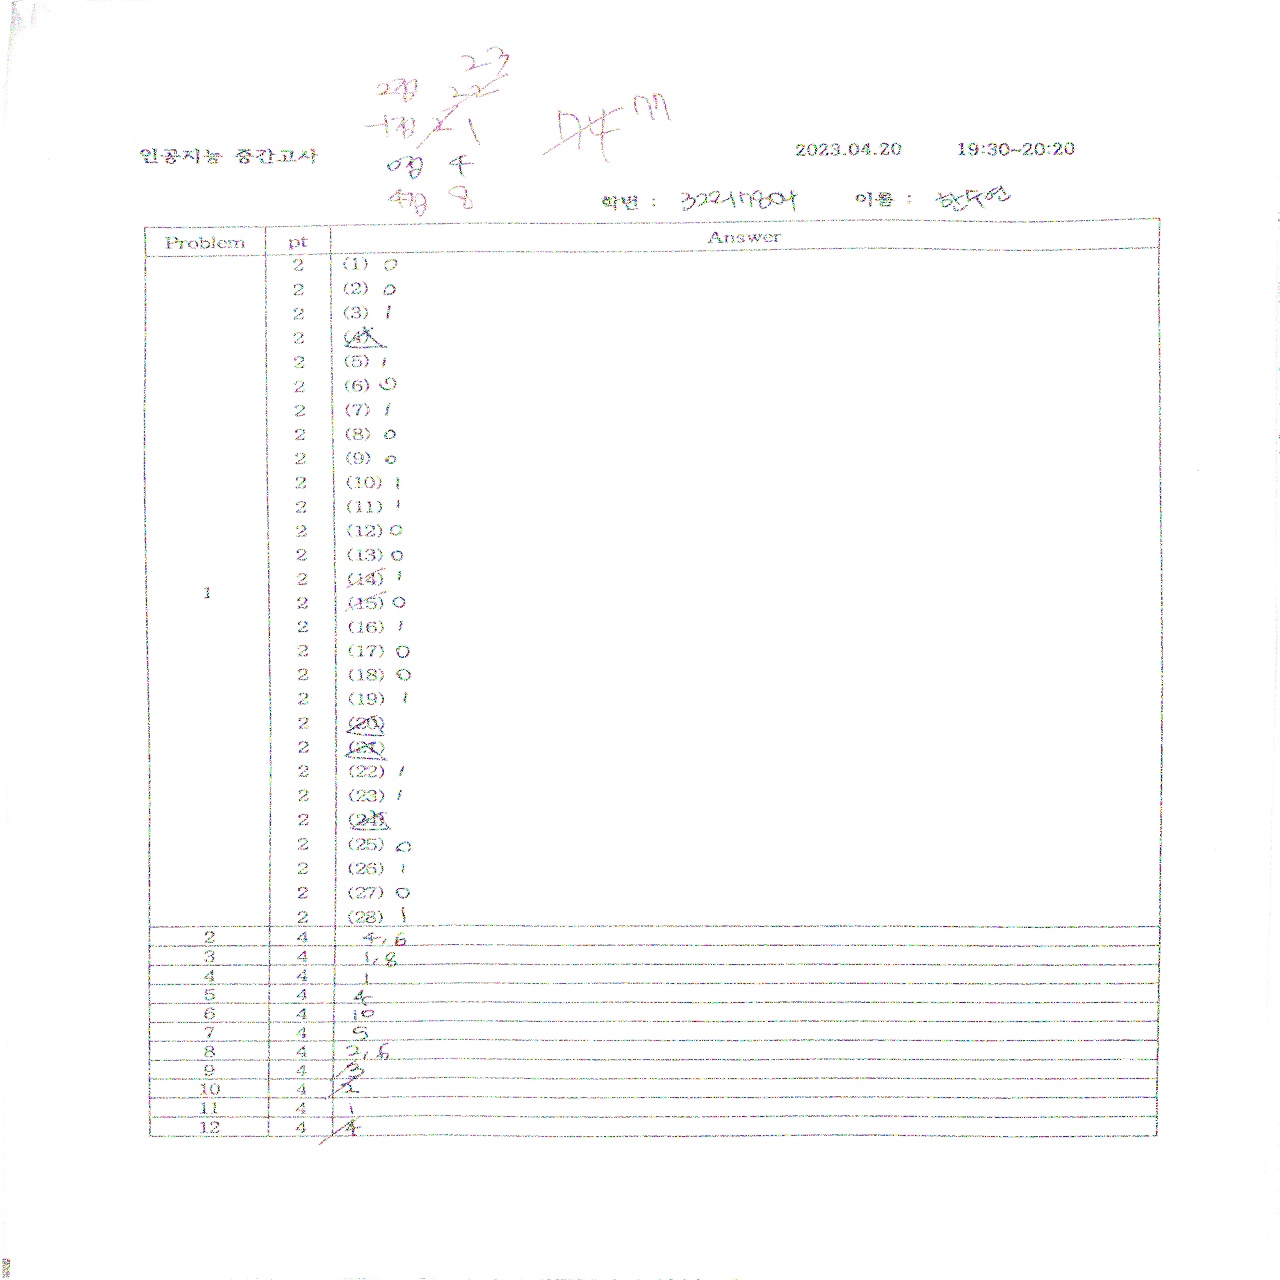 23
2점 22
-1점 21 1
74 77
인공지능 중간고사 2023.04.20 19:30~20:20
0점 4
4점 8
학번 : 이름 :
Problem pt Answer
1
2 (1) 0
2 (2) 0
2 (3) 1
2 (4)
2 (5) 1
2 (6) 0
2 (7) 1
2 (8) 0
2 (9) 0
2 (10) 1
2 (11) 1
2 (12) 0
2 (13) 0
2 (14) 1
2 (15) 0
2 (16) 1
2 (17) 0
2 (18) 0
2 (19) 1
2 (20)
2 (21)
2 (22) 1
2 (23) 1
2 (24)
2 (25) 0
2 (26) 1
2 (27) 0
2 (28) 1
2 4 4, 6
3 4 1, 8
4 4 1
5 4 4
6 4 10
7 4 5
8 4 2, 6
9 4 3
10 4 2
11 4 1
12 4 4